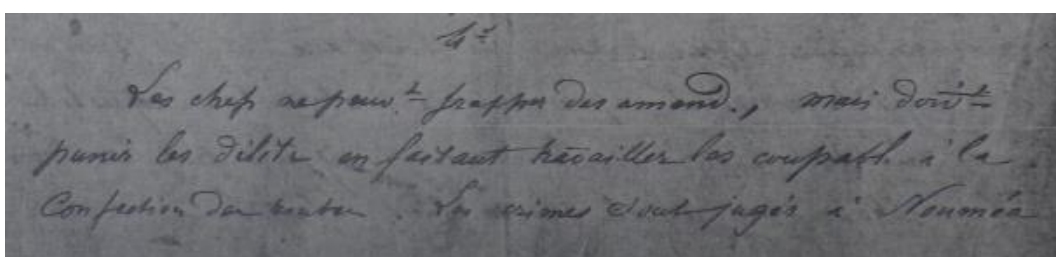 4º
Les chefs ne peuvt frapper des amend., mais doivt
punir les délits en faisant travailler les coupabl. à la
Confection des routes. Les crimes sont jugés à Nouméa